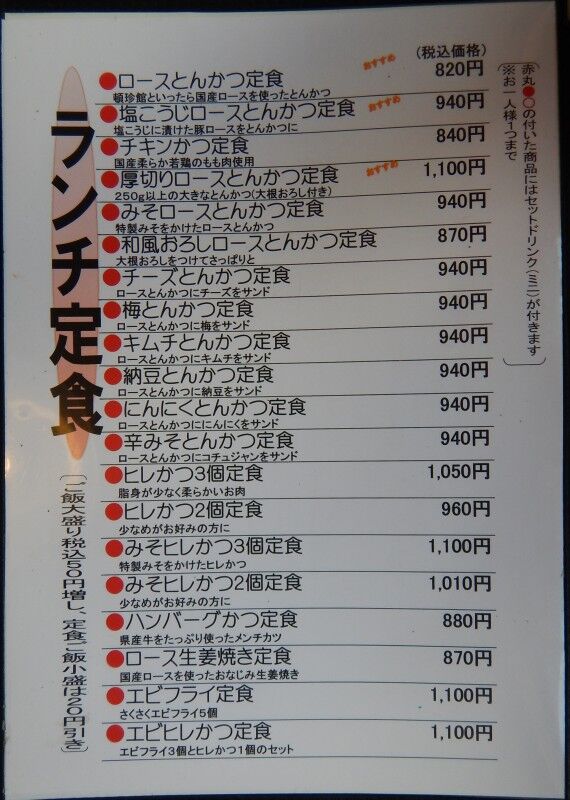 ランチ定食
(税込価格)
赤丸●○の付いた商品にはセットドリンク(ミニ)が付きます
※お一人様1つまで
●ロースとんかつ定食 おすすめ 820円
頓珍館といったら国産ロースを使ったとんかつ
●塩こうじロースとんかつ定食 おすすめ 940円
塩こうじに漬けた豚ロースをとんかつに
●チキンかつ定食 840円
国産柔らか若鶏のもも肉使用
●厚切りロースとんかつ定食 おすすめ 1,100円
250g以上の大きなとんかつ(大根おろし付き)
●みそロースとんかつ定食 940円
特製みそをかけたロースとんかつ
●和風おろしロースとんかつ定食 870円
大根おろしをつけてさっぱりと
●チーズとんかつ定食 940円
ロースとんかつにチーズをサンド
●梅とんかつ定食 940円
ロースとんかつに梅をサンド
●キムチとんかつ定食 940円
ロースとんかつにキムチをサンド
●納豆とんかつ定食 940円
ロースとんかつに納豆をサンド
●にんにくとんかつ定食 940円
ロースとんかつににんにくをサンド
●辛みそとんかつ定食 940円
ロースとんかつにコチュジャンをサンド
●ヒレかつ3個定食 1,050円
脂身が少なく柔らかいお肉
●ヒレかつ2個定食 960円
少なめがお好みの方に
●みそヒレかつ3個定食 1,100円
特製みそをかけたヒレかつ
●みそヒレかつ2個定食 1,010円
少なめがお好みの方に
●ハンバーグかつ定食 880円
県産牛をたっぷり使ったメンチカツ
●ロース生姜焼き定食 870円
国産ロースを使ったおなじみ生姜焼き
●エビフライ定食 1,100円
さくさくエビフライ5個
●エビヒレかつ定食 1,100円
エビフライ3個とヒレかつ1個のセット
〔ご飯大盛り税込50円増し、定食ご飯小盛は20円引き〕